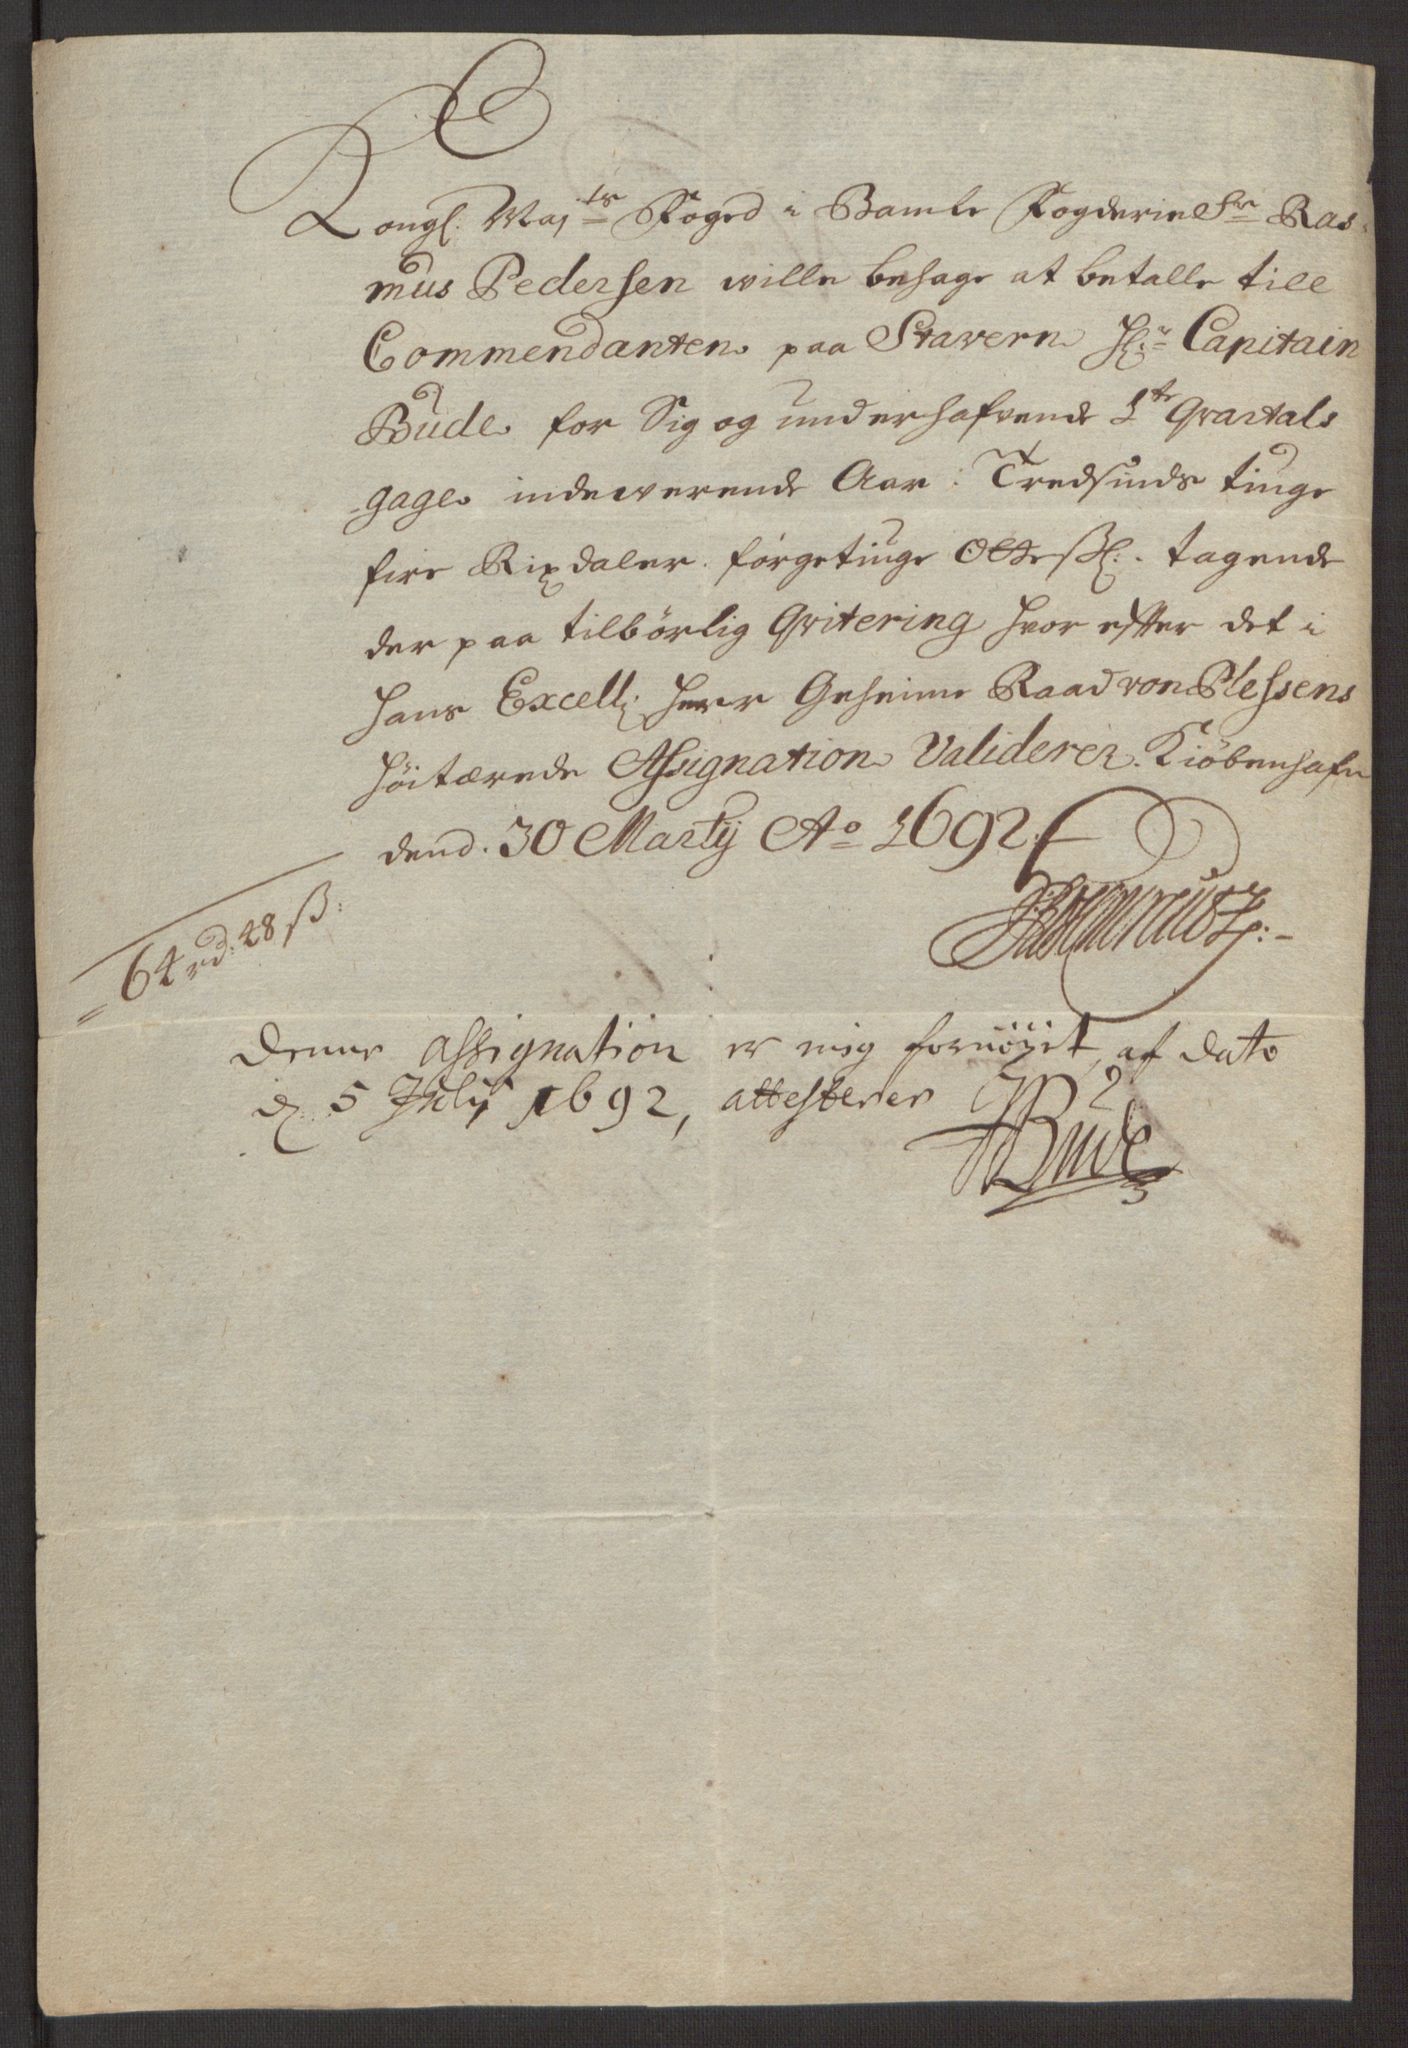 Kongl. Maj:ts Foged i Bamle Fogderie Sr Ras-
mus Pedersen wille behage at betalle till
Commendanten paa Stavern Hr: Capitain
Bude for Sig og underhafvende 1te Qvartals
gage indewerende Aar: Tredsinds tiuge
fire Rixdaler förgetiuge Otte ssl: tagende
der paa tilbörlig Qvitering hvor effter det i
Hans Excell: Herr Geheime Raad von Plessens
höitærede Assignation Validerer. Kiöbenhafn
dend. 30 Martij Ao 1692
64 rd: 48 ss:
Denne assignation er mig fornöyet, af dato
d. 5 Julij 1692, attesterer
Bude